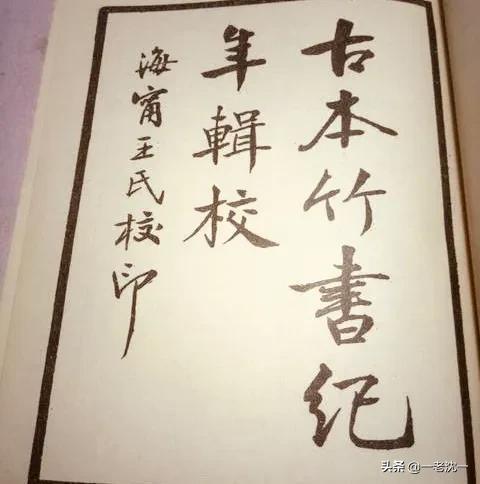 古本竹書纪
年輯校
海甯王氏校印
头条 @一老沈一